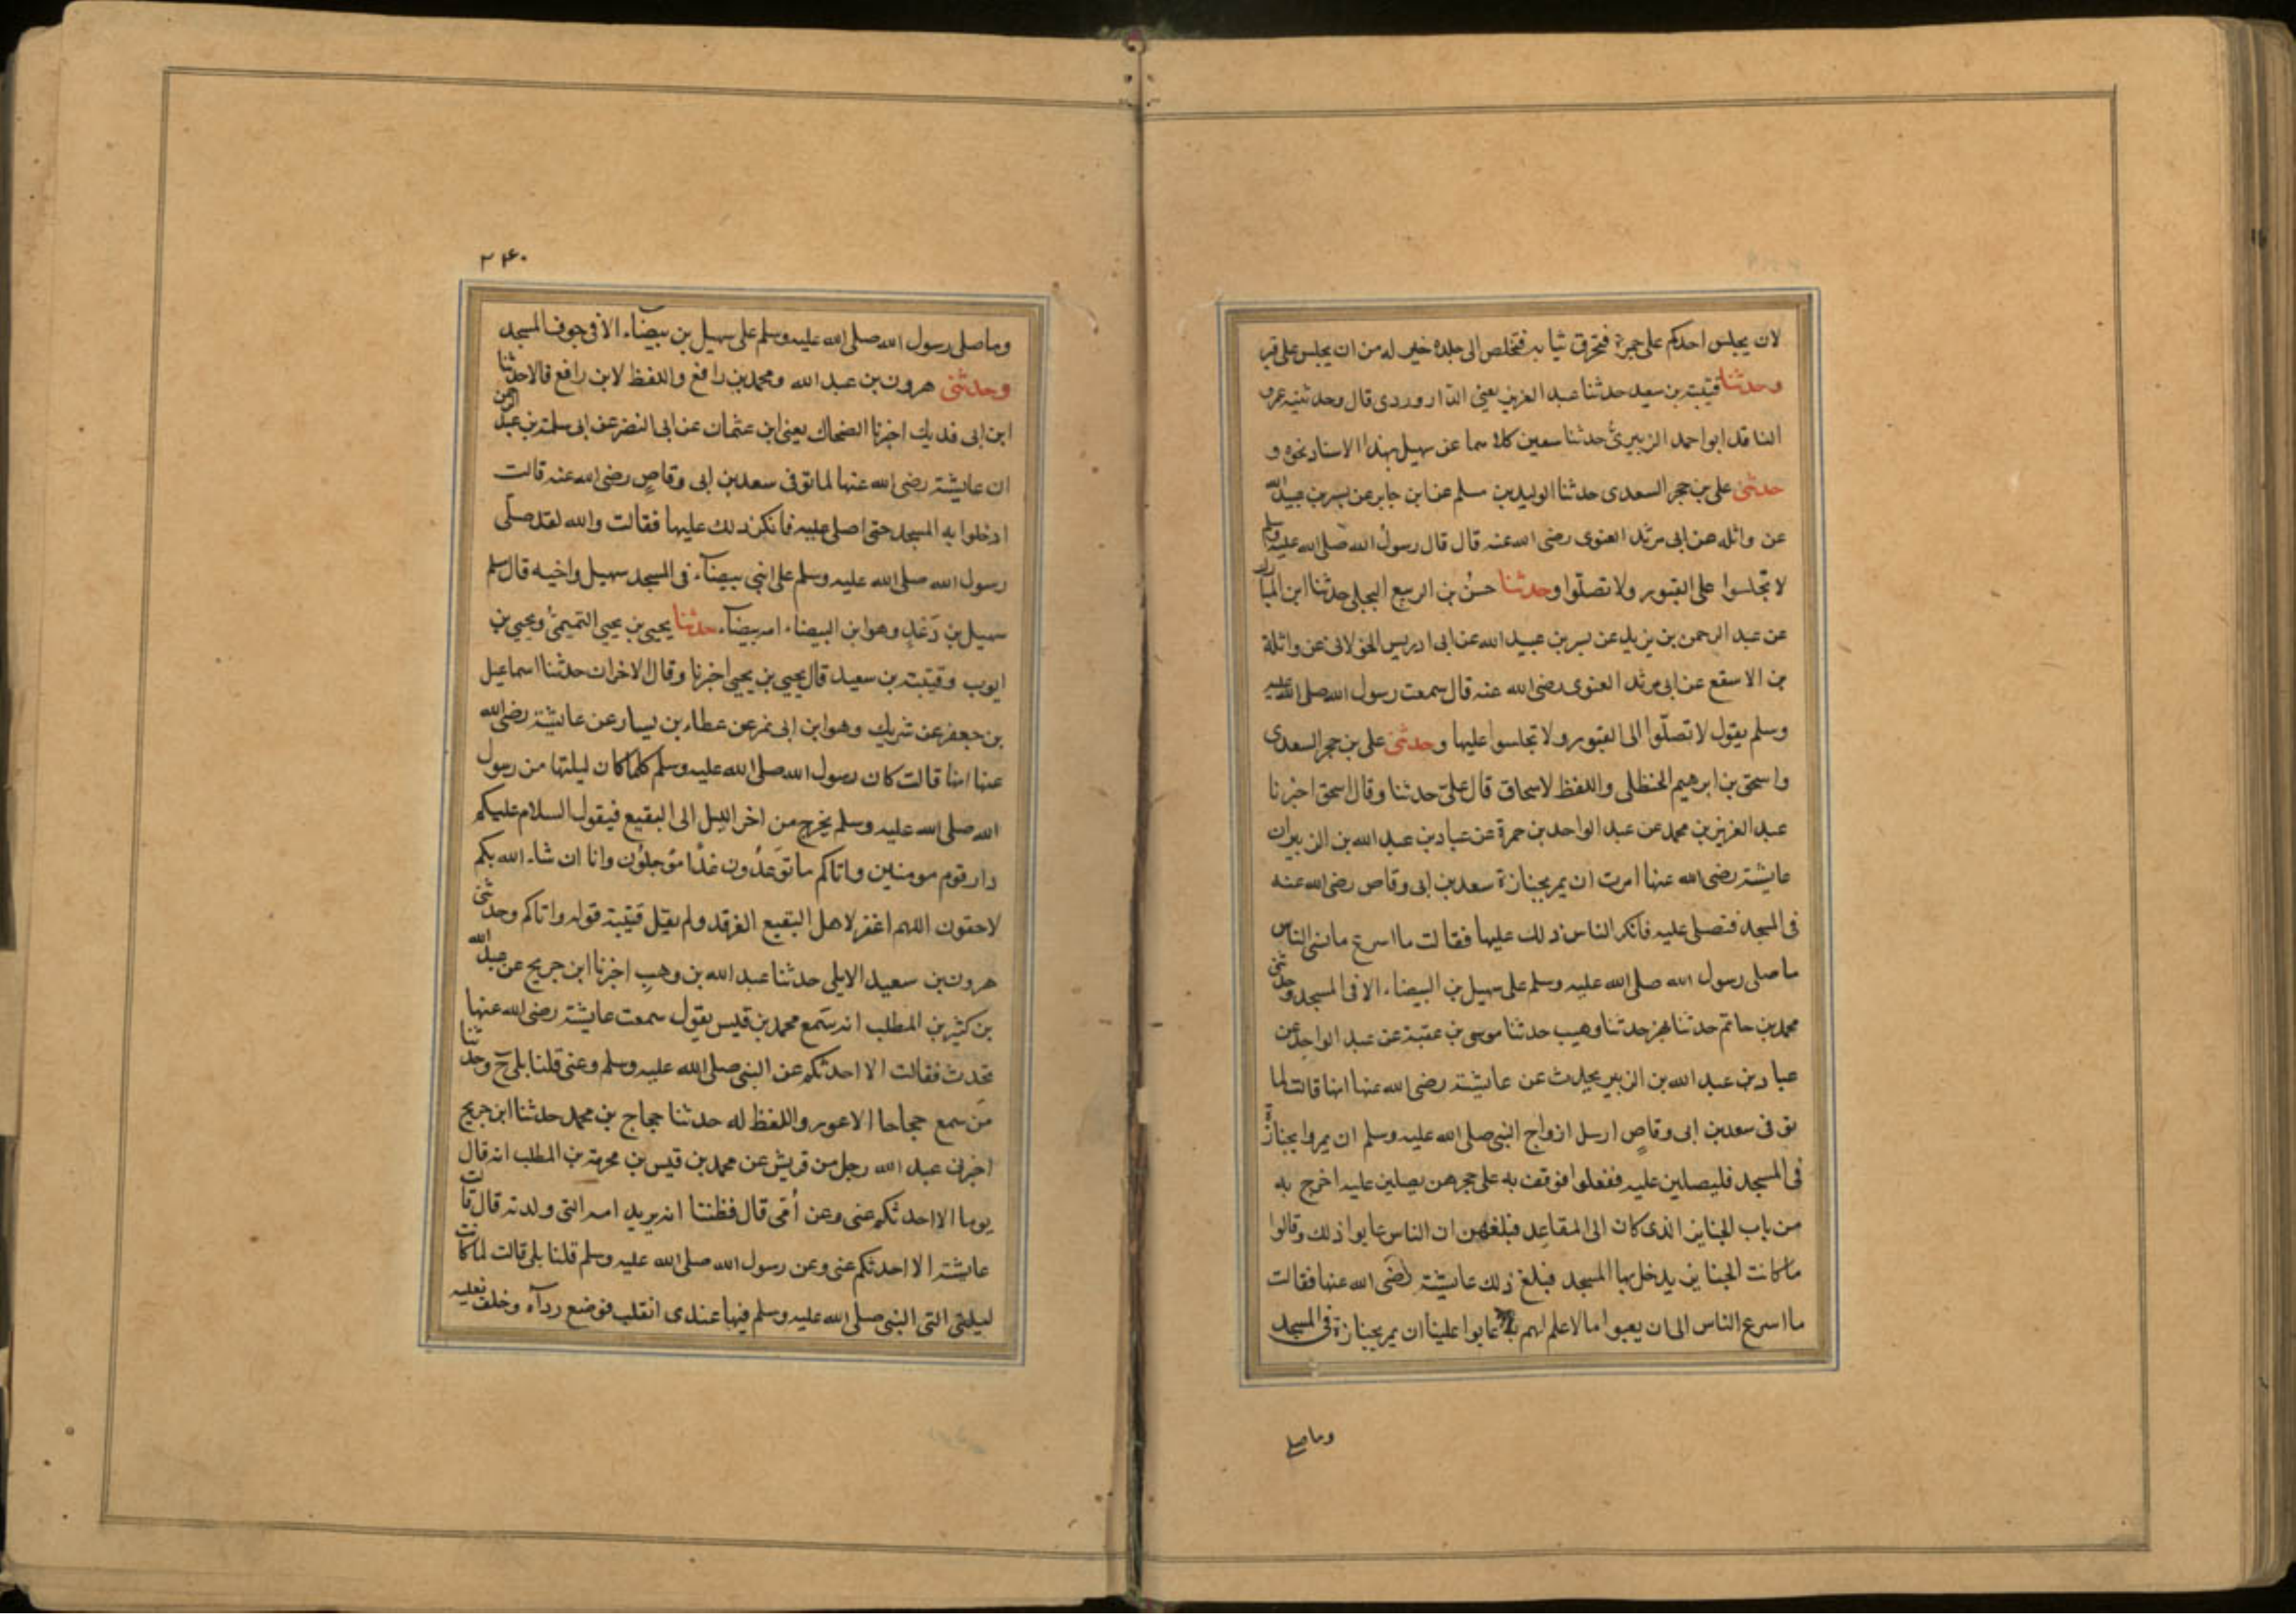 لان يجلس احدكم على جمرة فتحرق ثيابه فتخلص الى جلده خير له من ان يجلس على قبر
وحدثنا قتيبة بن سعيد حدثنا عبد العزيز يعني الدّاروردي قال وحدثنيه عمرو
الناقد ابو احمد الزبيريُّ حدثنا سفين كلاهما عن سهيل بهذا الاسناد نحوه و
حدثني علي بن حجر السعدي حدثنا الوليد بن مسلم عن ابن جابر عن بسر بن عبيد الله
عن واثله عن ابي مرثد الغنوي رضى الله عنه قال قال رسول الله صلى الله عليه وسلم
لا تجلسوا على القبور ولا تصلّوا وحدثنا حسنُ بن الربيع البجلي حدثنا ابن المبارك
عن عبد الرحمن بن يزيد عن بسر بن عبيد الله عن ابى ادريس الخولانى عن واثلة
بن الاسقع عن ابى مرثد الغنوى رضى الله عنه قال سمعت رسول الله صلى الله عليه
وسلم يقول لا تصلّوا الى القبور ولا تجلسوا عليها وحدثنى على بن حجر السعدى
واسحق بن ابرهيم الحنظلى واللفظ لاسحاق قال علىّ حدثنا وقال اسحق اخبرنا
عبد العزيز بن محمد عن عبد الواحد بن حمزة عن عباد بن عبد الله بن الزبير ان
عايشة رضى الله عنها امرت ان يمر بجنازة سعد بن ابى وقاص رضى الله عنه
فى المسجد فتصلى عليه فانكر الناس ذلك عليها فقالت ما اسرع ما نسى الناس
ما صلى رسول الله صلى الله عليه وسلم على سهيل بن البيضاء الا فى المسجد وحدثنى
محمد بن حاتم حدثنا بهز حدثنا وهيب حدثنا موسى بن عقبة عن عبد الواحد عن
عباد بن عبد الله بن الزبير يحدث عن عايشة رضى الله عنها انها قالت لما
توفى سعد بن ابى وقاصٍ ارسل ازواج النبى صلى الله عليه وسلم ان يمروا بجنازته
فى المسجد فليصلين عليه ففعلوا فوقف به على حجرهن يصلين عليه اخرج به
من باب الجنايز الذى كان الى المقاعد فبلغهن ان الناس عابوا ذلك وقالوا
ما كانت الجنايز يدخل بها المسجد فبلغ ذلك عايشة رضى الله عنها فقالت
ما اسرع الناس الى ان يعيبوا ما لا علم لهم به عابوا علينا ان يمر بجنازة فى المسجد
وما صلى
٢٤٠
وما صلى رسول الله صلى الله عليه وسلم على سهيل بن بيضاء الا فى جوف المسجد
وحدثنى هرون بن عبد الله ومحمد بن رافع واللفظ لابن رافع قالا حدثنا
ابن ابى فديك اخبرنا الضحاك يعنى ابن عثمان عن ابى النضر عن ابى سلمة بن عبد الرحمن
ان عايشة رضى الله عنها لما توفى سعد بن ابى وقاصٍ رضى الله عنه قالت
ادخلوا به المسجد حتى اصلى عليه فانكر ذلك عليها فقالت والله لقد صلّى
رسول الله صلى الله عليه وسلم على ابنى بيضآء فى المسجد سهيل واخيه قال مسلم
سهيل بن دَعْدٍ وهو ابن البيضاء امه بيضآء حدثنا يحيى بن يحيى التميمىُّ ويحيى بن
ايوب وقتيبة بن سعيد قال يحيى بن يحيى اخبرنا وقال الاخران حدثنا اسماعيل
بن جعفر عن شريك وهو ابن ابى نمر عن عطاء بن يسار عن عايشة رضى الله
عنها انها قالت كان رسول الله صلى الله عليه وسلم كلما كان ليلتها من رسول
الله صلى الله عليه وسلم يخرج من اخر الليل الى البقيع فيقول السلام عليكم
دار قوم مومنين واتاكم ما تُوعَدُون غدًا مؤجلوُن وانا ان شاء الله بكم
لاحقون اللهم اغفر لاهل البقيع الغرقد ولم يقل قتيبة قوله واتاكم وحدثنى
هرون بن سعيد الايلى حدثنا عبد الله بن وهبٍ اخبرنا ابن جريج عن عبد الله
بن كثير بن المطلب انه سَمع محمد بن قيس يقول سمعت عايشة رضى الله عنها
تحدث فقالت الا احدثكم عن النبى صلى الله عليه وسلم وعنى قلنا بلى ح وحدثنا
مَن سمع حجاجا الاعور واللفظ له حدثنا حجاج بن محمد حدثنا ابن جريج
اخبرنى عبد الله رجل من قريش عن محمد بن قيس بن مخرمة بن المطلب انه قال
يوما الا احدثكم عنى وعن أُمّى قال فظننا انه يريد امه التى ولدته قال قالت
عايشة الا احدثكم عنى وعن رسول الله صلى الله عليه وسلم قلنا بلى قالت لما كانت
ليلتى التى النبى صلى الله عليه وسلم فيها عندى انقلب فوضع ردآه وخلع نعليه